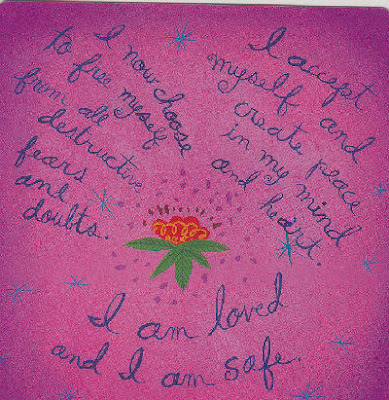 I now choose
to free myself
from all
destructive
fears
and
doubts.
I accept
myself and
create peace
in my mind
and heart.
I am loved
and I am safe.